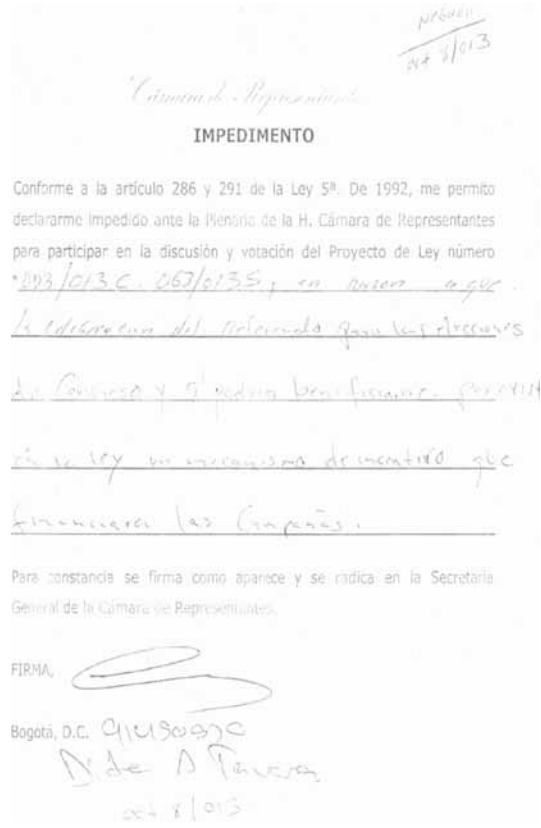 Negado
oct 8/013
Cámara de Representantes
IMPEDIMENTO
Conforme a la artículo 286 y 291 de la Ley 5ª. De 1992, me permito
declararme impedido ante la Plenaria de la H. Cámara de Representantes
para participar en la discusión y votación del Proyecto de Ley número
063/013S, en razon a que
la celebracion del referendo para las elecciones
de Congreso y podria beneficiarme. por
en la ley un mecanismo de incentivo que
financiara las Campañas.
Para constancia se firma como aparece y se radica en la Secretaría
General de la Cámara de Representantes.
FIRMA,
Bogotá, D.C.
oct 8/013